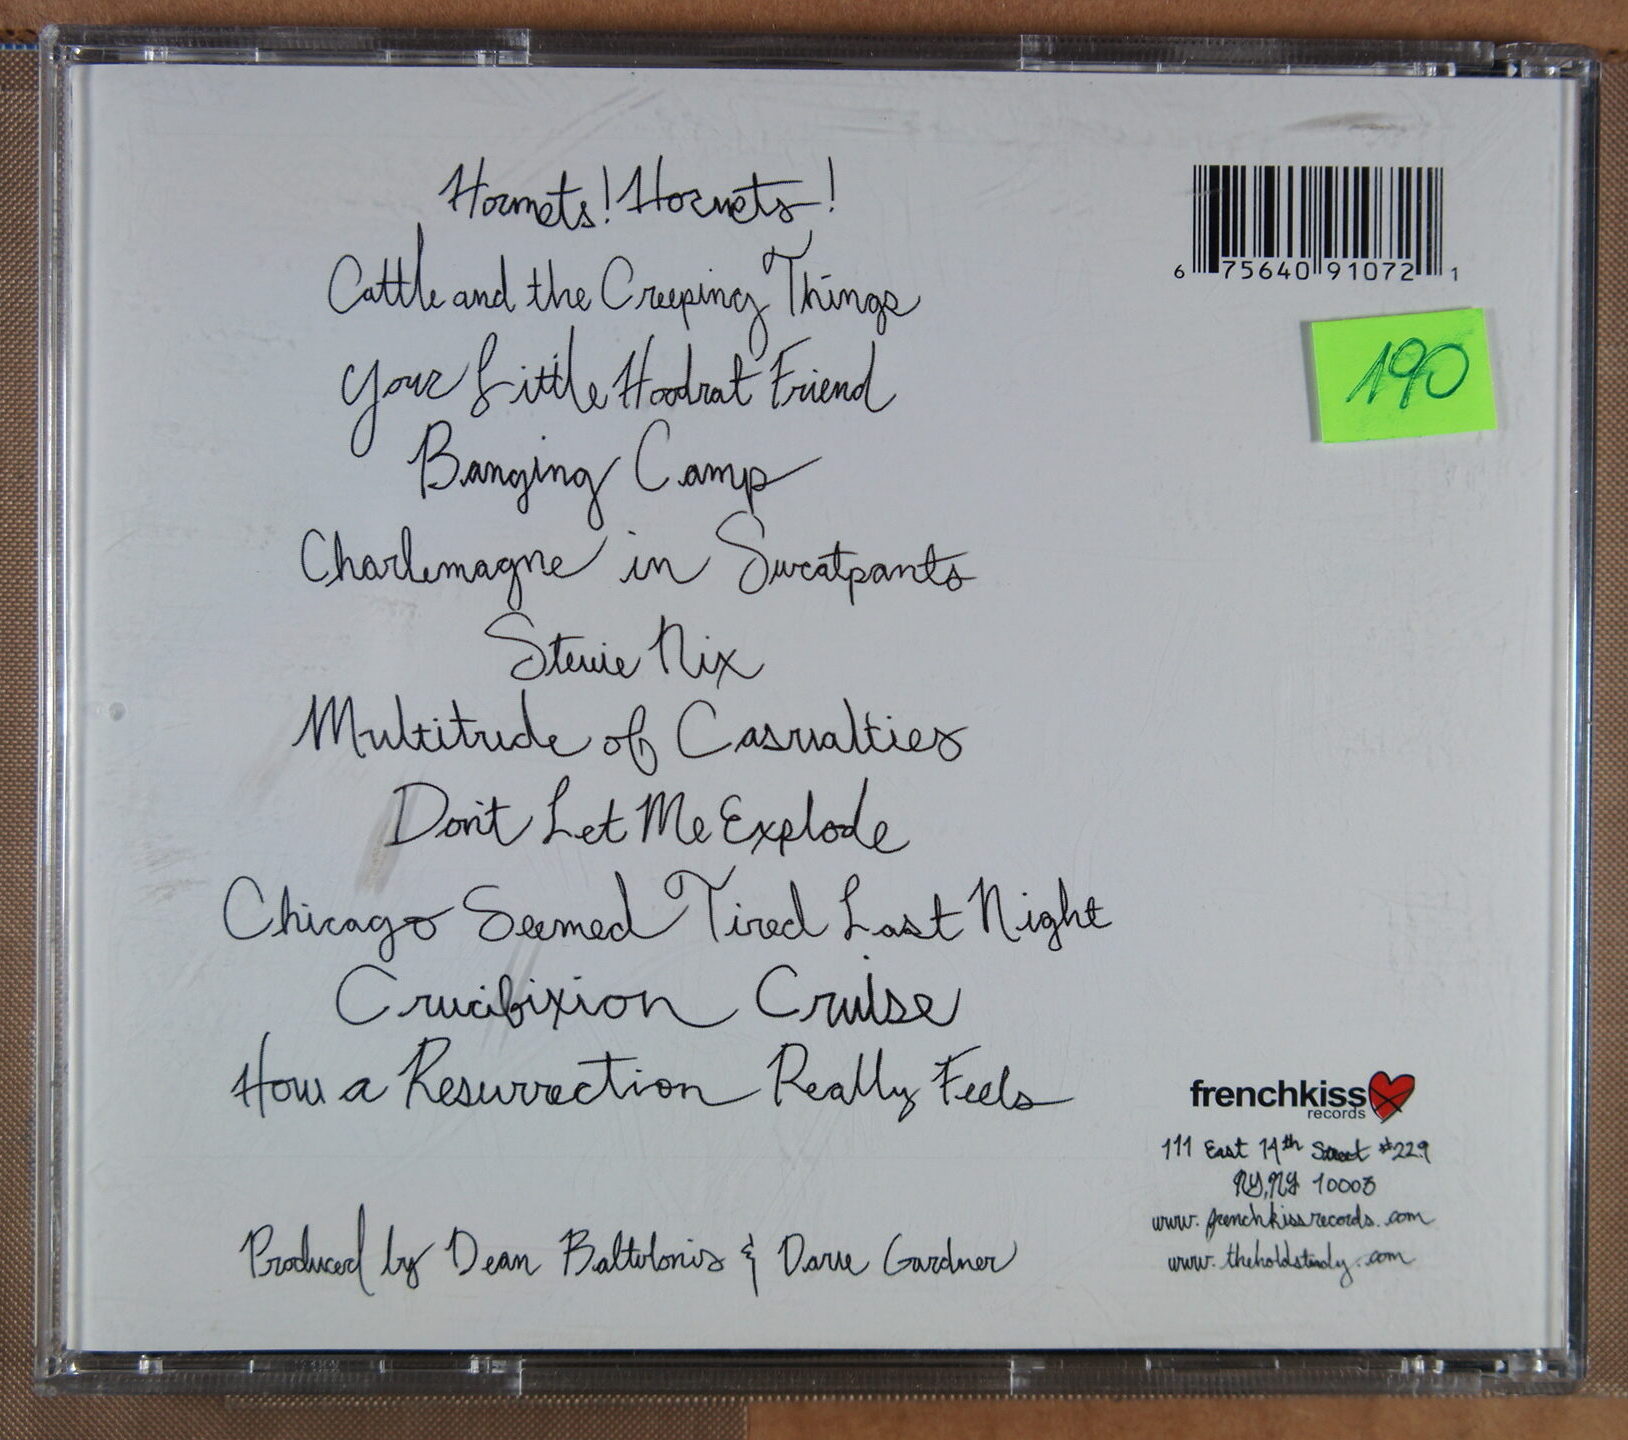 Hornets! Hornets!
Cattle and the Creeping Things
Your Little Hoodrat Friend
Banging Camp
Charlemagne in Sweatpants
Stevie Nix
Multitude of Casualties
Don't Let Me Explode
Chicago Seemed Tired Last Night
Crucifixion Cruise
How a Resurrection Really Feels
Produced by Dean Baltulonis & Dave Gardner
6 75640 91072 1
190
frenchkiss
records
111 East 14th Street #229
NY, NY 10003
www.frenchkissrecords.com
www.theholdsteady.com